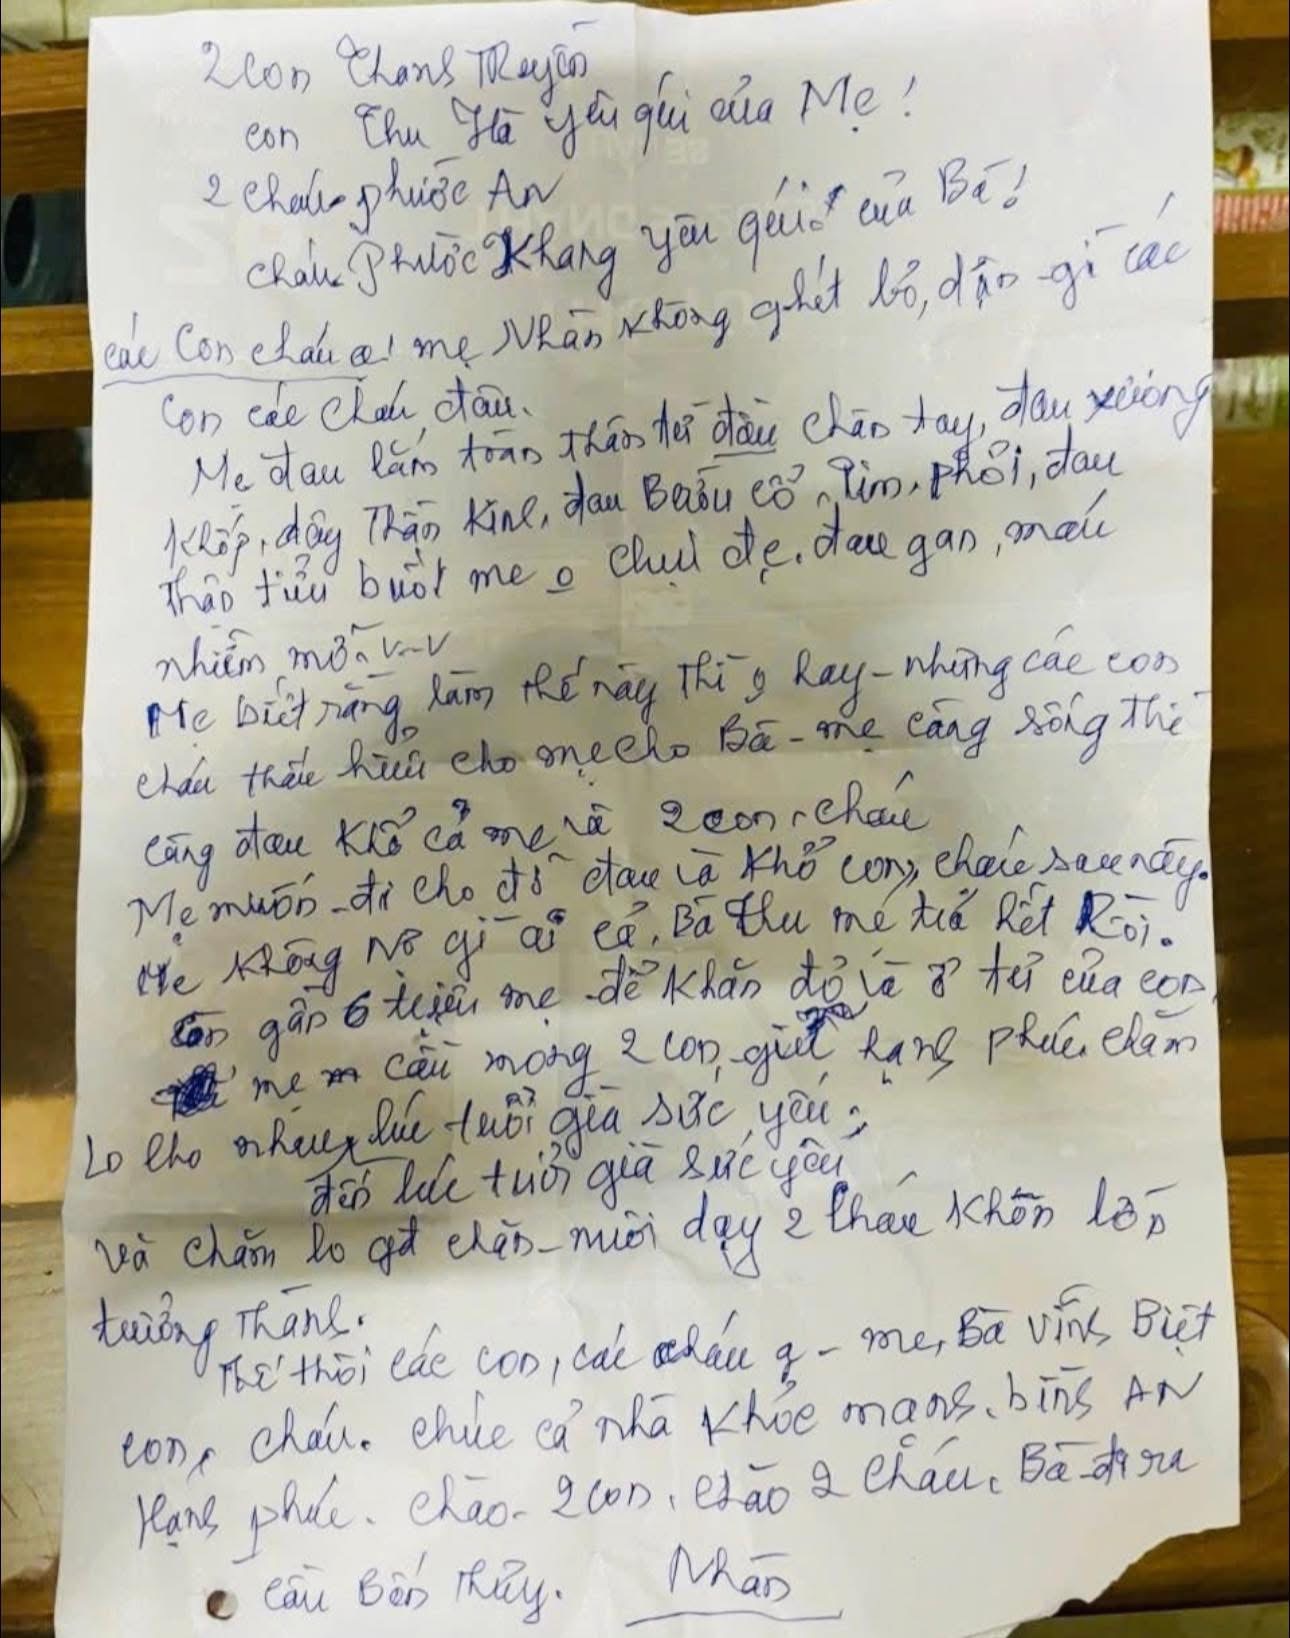 2 con Thanh Truyền
con Thu Hà yêu qúi của Mẹ!
2 cháu phước AN
cháu Phước Khang yêu qúi của Bà!
các Con cháu ơi mẹ Nhàn không ghét bỏ, dận gì các
con các cháu đâu.
Mẹ đau lắm toàn thân từ đầu chân tay, đau xương
khớp, dây thần kinh, đau Bướu cổ, Tim, phổi, đau
thận tiểu buốt mẹ o chụi đc. đau gan, máu
nhiễm mỡ v..v
Mẹ biết rằng làm thế này thì o hay - nhưng các con
cháu thấu hiểu cho mẹ cho Bà - mẹ càng sống thì
càng đau khổ cả mẹ và 2 con, cháu
Mẹ muốn đi cho đỡ đau và khổ con, cháu sau này.
Mẹ không nợ gì ai cả, Bà Thu mẹ trả hết Rồi.
còn gần 6 triệu mẹ để khăn đỏ và ở tủ của con
mẹ cầu mong 2 con giữ hạnh phúc chăm
Lo cho nhau lúc tuổi già sức yếu
đến lúc tuổi già sức yếu
và chăm lo gđ chăn nuôi dạy 2 cháu khôn lớn
trưởng Thành.
Thế thôi các con, các cháu - mẹ, Bà vĩnh Biệt
con, cháu. chúc cả nhà khỏe mạnh, bình AN
Hạnh phúc. chào 2 con, chào 2 cháu. Bà đi ra
cầu Bến Thủy. Nhàn